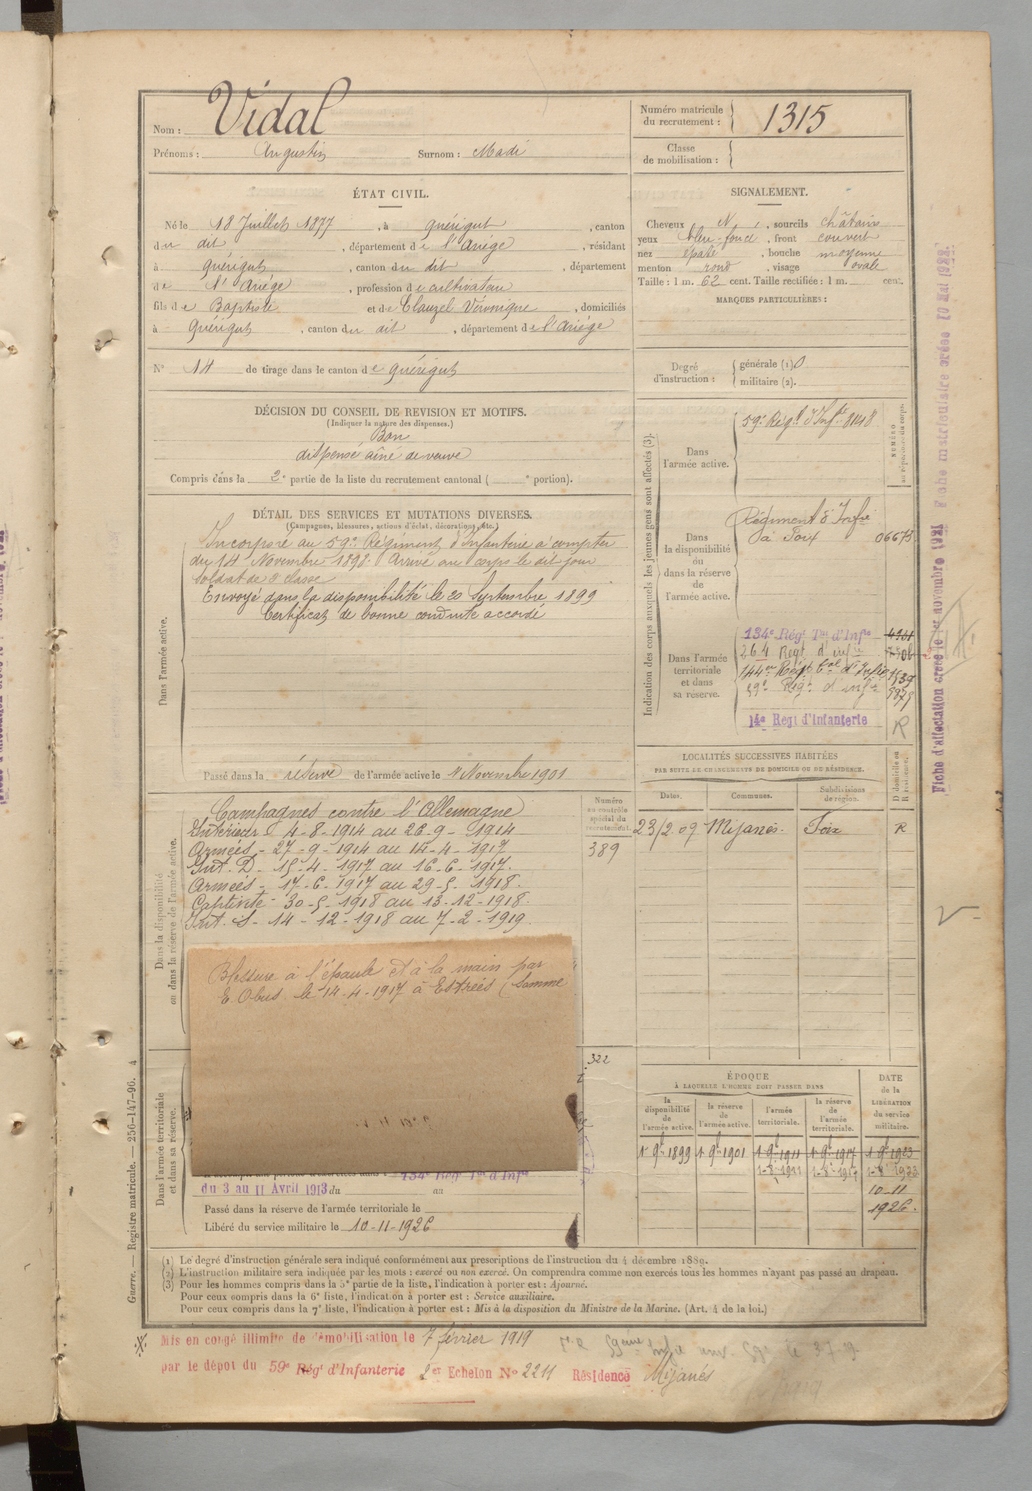 Nom : Vidal
Prénoms : Augustin Surnom : Madi
Numéro matricule du recrutement : 1315
Classe de mobilisation :
ÉTAT CIVIL.
Né le 18 Juillet 1877, à Quérigut, canton
du dit, département de l'Ariège, résidant
à Quérigut, canton du dit, département
de l'Ariège, profession de cultivateur
fils de Baptiste et de Clauzel Véronique, domiciliés
à Quérigut, canton du dit, département de l'Ariège
N° 14 de tirage dans le canton de Quérigut
SIGNALEMENT.
Cheveux N, sourcils châtains
yeux bleu-foncé, front couvert
nez épaté, bouche moyenne
menton rond, visage ovale
Taille : 1 m. 62 cent. Taille rectifiée : 1 m. cent.
MARQUES PARTICULIÈRES :
Degré d'instruction : générale (1) 0
militaire (2).
DÉCISION DU CONSEIL DE REVISION ET MOTIFS.
(Indiquer la nature des dispenses.)
Bon
dispensé aîné de veuve
Compris dans la 2e partie de la liste du recrutement cantonal ( e portion).
DÉTAIL DES SERVICES ET MUTATIONS DIVERSES.
(Campagnes, blessures, actions d'éclat, décorations, etc.)
Dans l'armée active.
Incorporé au 59e Régiment d'Infanterie à compter
du 14 Novembre 1898. Arrivé au corps le dit jour
soldat de 2e classe
Envoyé dans la disponibilité le 20 Septembre 1899
Certificat de bonne conduite accordé
Passé dans la réserve de l'armée active le 1 Novembre 1901
Indication des corps auxquels les jeunes gens sont affectés (3).
NUMÉRO au répertoire du corps.
Dans l'armée active.
59e Régt d'Infie 8148
Dans la disponibilité ou dans la réserve de l'armée active.
Régiment d'Infie
à Foix 06673
Dans l'armée territoriale et dans sa réserve.
134e Régt Ter d'Infie
264 Régt d'infie
144e Régt Tal d'Infie
59e Régt d'infie
14e Régt d'Infanterie R
LOCALITÉS SUCCESSIVES HABITÉES
PAR SUITE DE CHANGEMENTS DE DOMICILE OU DE RÉSIDENCE.
Dates. Communes. Subdivisions de région. D domicile ou R résidence.
23/2 09 Mijanès. Foix R
Dans la disponibilité ou dans la réserve de l'armée active.
Numéro au contrôle spécial du recrutement.
389
Campagnes contre l'Allemagne
Intérieur 4-8-1914 au 26-9-1914
Armées - 27-9-1914 au 14-4-1917
Int. D - 15-4-1917 au 16-6-1917.
Armées - 17-6-1917 au 29-5-1918.
Captivité - 30-5-1918 au 13-12-1918.
Int. S - 14-12-1918 au 7-2-1919.
Blessure à l'épaule et à la main par
E. Obus le 14-4-1917 à Estrées (Somme
322
Dans l'armée territoriale et dans sa réserve.
134e Régt Ter d'Infie
du 3 au 11 Avril 1913 du au
Passé dans la réserve de l'armée territoriale le
Libéré du service militaire le 10-11-1926
ÉPOQUE
À LAQUELLE L'HOMME DOIT PASSER DANS
la disponibilité de l'armée active. la réserve de l'armée active. l'armée territoriale. la réserve de l'armée territoriale.
DATE de la LIBÉRATION du service militaire.
1 9bre 1899 1 9bre 1901 1 9bre 1911 1 9bre 1917 1 9bre 1923
10-11
1926.
(1) Le degré d'instruction générale sera indiqué conformément aux prescriptions de l'instruction du 4 décembre 1889.
(2) L'instruction militaire sera indiquée par les mots : exercé ou non exercé. On comprendra comme non exercés tous les hommes n'ayant pas passé au drapeau.
(3) Pour les hommes compris dans la 5e partie de la liste, l'indication à porter est : Ajourné.
Pour ceux compris dans la 6e liste, l'indication à porter est : Service auxiliaire.
Pour ceux compris dans la 7e liste, l'indication à porter est : Mis à la disposition du Ministre de la Marine. (Art. 4 de la loi.)
Mis en congé illimité de démobilisation le 7 février 1919
par le dépot du 59e Rég' d'Infanterie 2er Echelon No 2211 Résidence Mijanés
Guerre. — Registre matricule. — 256-147-96. 4
Fiche d'affectation créée le 1er novembre 1921 Fiche matriculaire créée 10 Mai 1922.